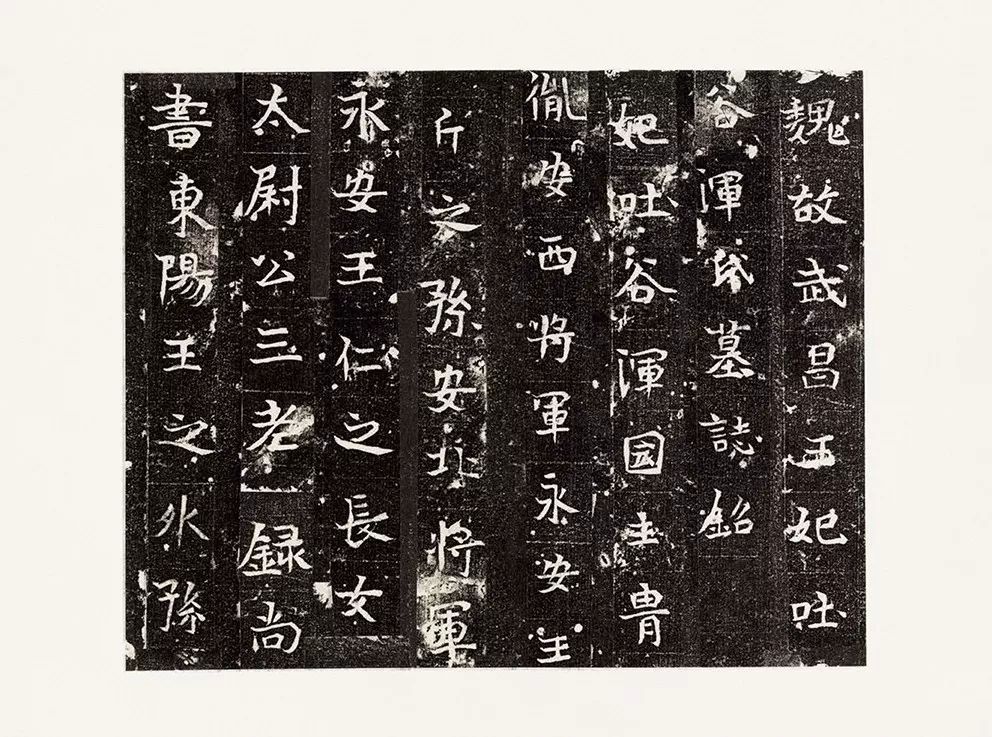 魏故武昌王妃吐
谷渾氏墓誌銘
妃吐谷渾国主胄
胤安西將軍永安王
斤之孫安北將軍
永安王仁之長女
太尉公三老録尚
書東陽王之外孫